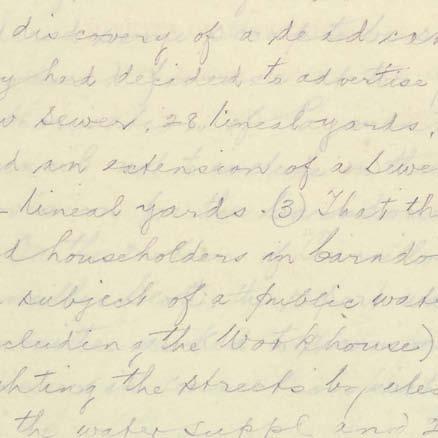 discovery of a dead
y had decided to advertise
w Sewer, 28 lineal yards,
d an extension of a Sewe
lineal yards. (3) That th
d householders in Carndo
subject of a public wat
cluding the Workhouse)
ghting the streets by elec
the water suppl and